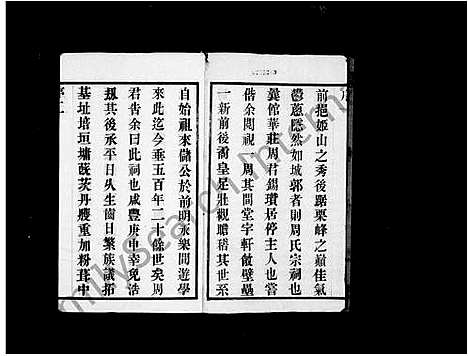 前挹姬山之秀後踞栗峰之巔佳氣
鬱蔥隱然如城郭者則周氏宗祠也
龔館華莊周君錫瓚居停主人也嘗
偕余閱視一周其間堂宇軒敞壁壘
一新前後喬皇壯觀瞻稽其世系
自始祖來儲公於前明永樂間遊學
來此迄今垂五百年二十餘世矣周
君告余曰此祠也咸豐庚申幸免浩
刼其後承平日久生齒日繁族議拓
基址培垣墉茂茨丹雘重加粉葺中
FamilySearch International